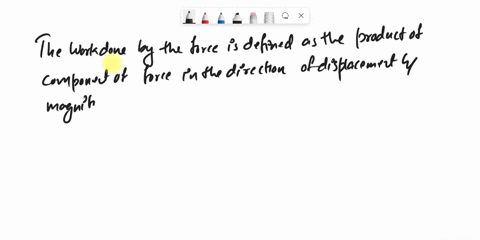 The workdone by the force is defined as the product of
component of force in the direction of displacement &
magnit